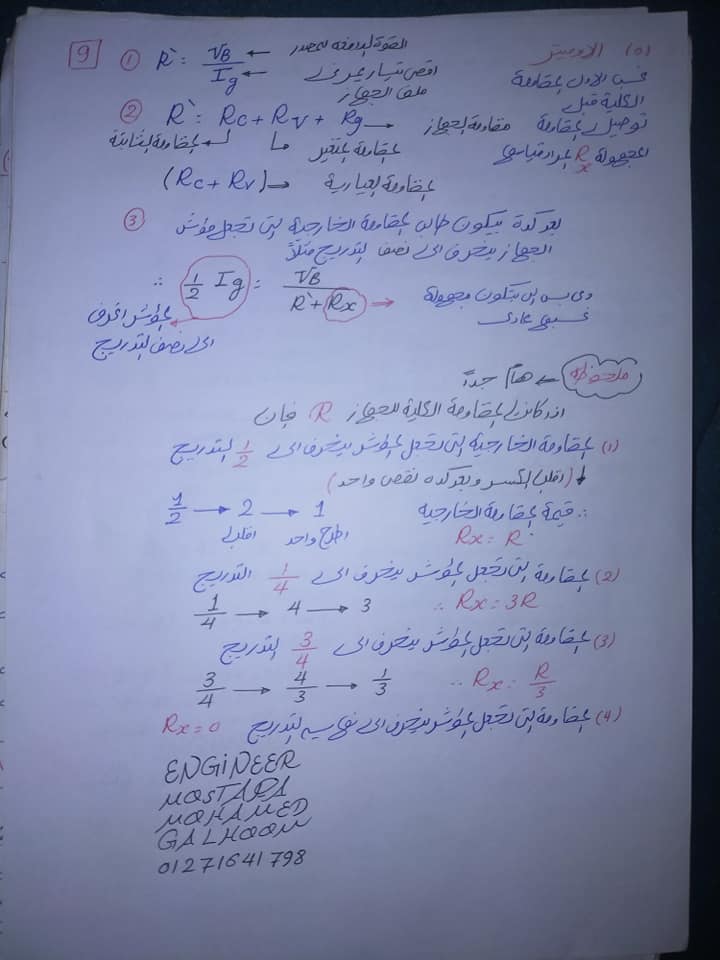 9
(٥) الأوميتر
① R` = VB / Ig
القوة الدافعة للمصدر
اقصى تيار يمر في ملف الجهاز
نحسب الأول المقاومة الكلية قبل
توصيل المقاومة المجهولة Rx المراد قياسها
② R` = Rc + Rv + Rg
مقاومة الجهاز
المقاومة المتغيرة
المقاومة الثابتة
(Rc + Rv) → المقاومة العيارية
③ بعد كدة بيكون طالب المقاومة الخارجية التي تجعل مؤشر
الجهاز ينحرف الى نصف التدريج مثلاً
∴ 1/2 Ig = VB / R`+Rx
دي بس اللي بتكون مجهولة
عادي
المؤشر انحرف
الى نصف التدريج
ملحوظة ← هام جداً
اذا كانت المقاومة الكلية للجهاز R فإن
(1) المقاومة الخارجية التي تجعل المؤشر ينحرف الى 1/2 التدريج
↓ (اقلب الكسر وبعد كده نقص واحد)
1/2 → 2 → 1
اقلب اطرح واحد
∴ قيمة المقاومة الخارجية
Rx = R
(2) المقاومة التي تجعل المؤشر ينحرف الى 1/4 التدريج
1/4 → 4 → 3 ∴ Rx = 3R
(3) المقاومة التي تجعل المؤشر ينحرف الى 3/4 التدريج
3/4 → 4/3 → 1/3 ∴ Rx = R/3
(4) المقاومة التي تجعل المؤشر ينحرف الى نهاية التدريج Rx = 0
ENGINEER
MOSTAFA
MOHAMED
GALHOOM
01271641798